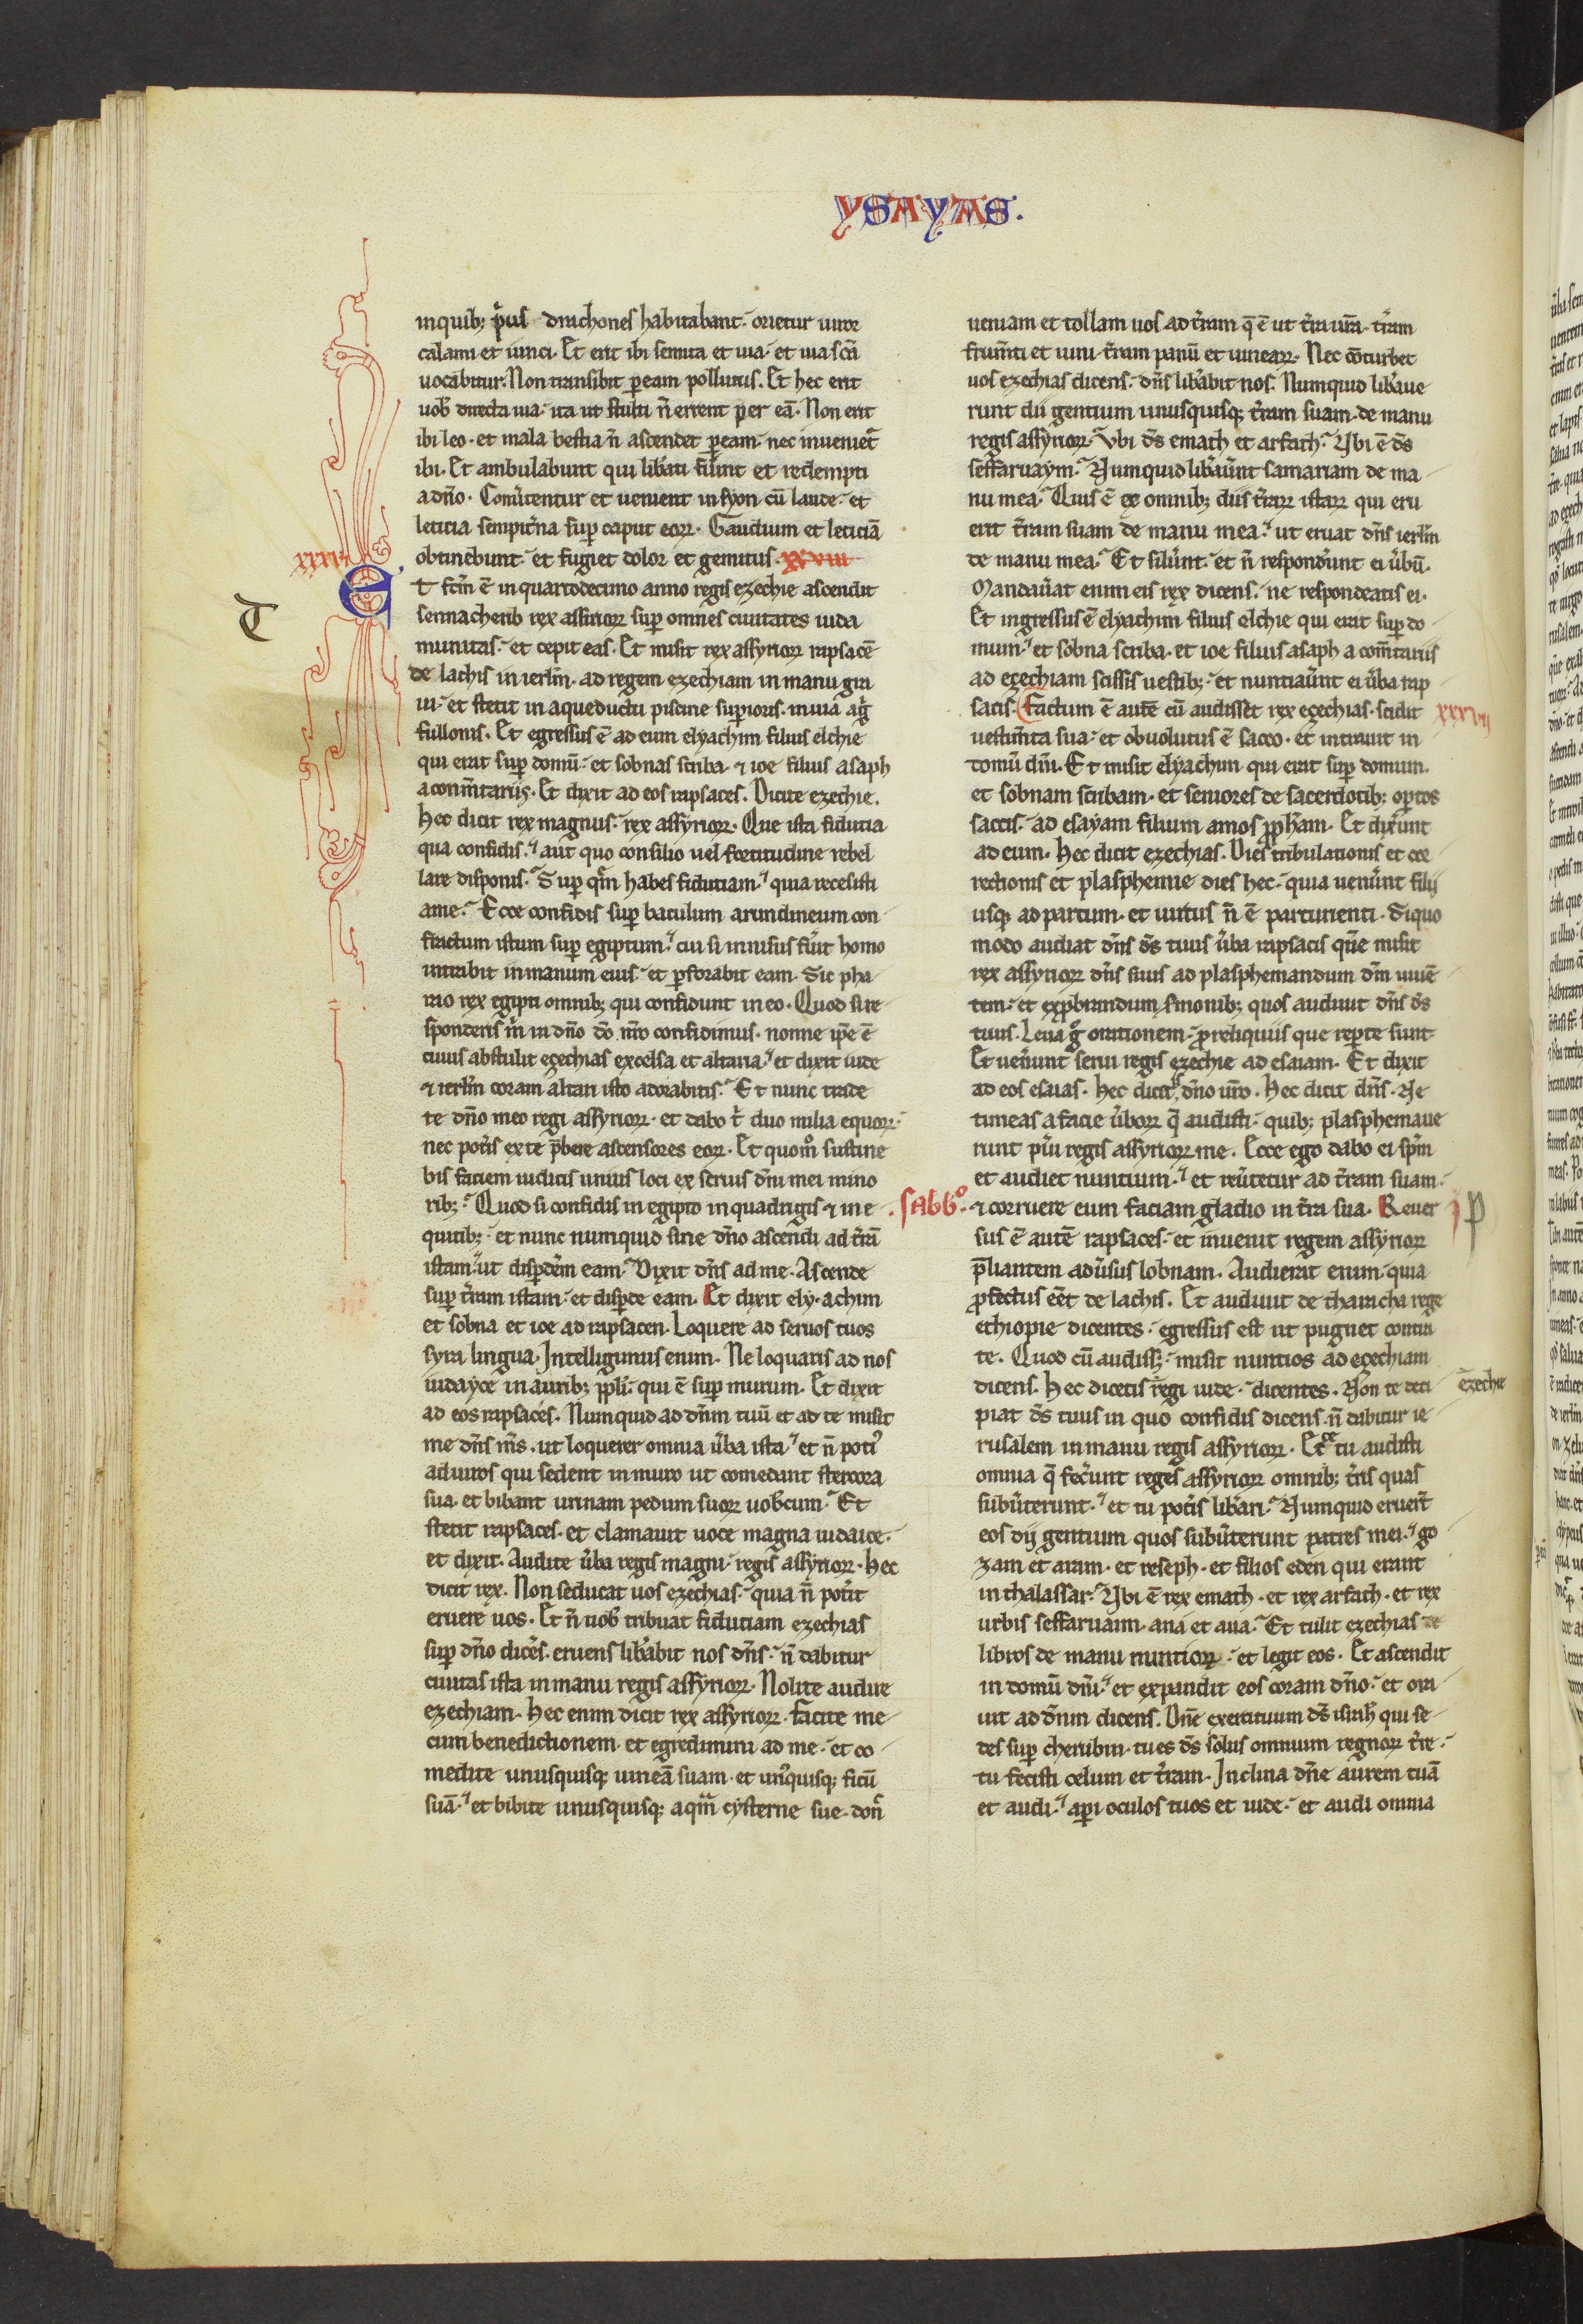 YSAYAS.
in quib; p̄us drachones habitabant. orietur uiror
calami et iunci. Et erit ibi semita et uia. et uia sc̄a
uocabitur. Non transibit p̲ eam pollutus. Et hec erit
uob̄ directa uia. ita ut stulti n̄ errent per eā. Non erit
ibi leo. et mala bestia n̄ ascendet p̲ eam. nec inueniet᷑
ibi. Et ambulabunt qui lib̾ati fu̾int et redempti
a dn̄o. Conu̾tentur et uenient in syon cū laude. et
leticia sempit̾na sup̲ caput eoꝝ. Gaudium et leticiā
obtinebunt. et fugiet dolor et gemitus. xxviii
xxxvi
Et fc̄m ē in quartodecimo anno regis ezechie ascendit
sennacherib rex assirioꝝ sup̲ omnes ciuitates iuda
munitas. et cepit eas. Et misit rex assyrioꝝ rapsacē
de lachis in ierl̄m. ad regem ezechiam in manu gra
ui. et stetit in aqueductu piscine sup̲ioris. in uia ag̾
fullonis. Et egressus ē ad eum elyachim filius elchie
qui erat sup̲ domū. et sobnas scriba ⁊ ioe filius asaph
a com̄tariis. Et dixit ad eos rapsaces. Dicite ezechie.
Hec dicit rex magnus. rex assyrioꝝ. Que ista fidutia
qua confidis. aut quo consilio uel fortitudine rebel
lare disponis. Sup̲ qm̄ habes fidutiam. quia recesisti
a me. Ecce confidis sup̲ baculum arundineum con
fractum istum sup̲ egiptum. cui si innisus fu̾it homo
intrabit in manum eius. et p̲forabit eam. Sic pha
rao rex egipti omnib; qui confidunt in eo. Quod si re
sponderis m̄ in dn̄o dō nr̄o confidimus. nonne ip̄e ē
cuius abstulit ezechias excelsa et altaria. et dixit iude
⁊ ierl̄m coram altari isto adorabitis. Et nunc trade
te dn̄o meo regi assyrioꝝ. et dabo t̾ duo milia equoꝝ.
nec pot̾is ex te p̄bere ascensores eoꝝ. Et quom̊ sustine
bis faciem iudicis unius loci ex seruis dn̄i mei mino
rib;. Quod si confidis in egipto in quadrigis ⁊ in e
quitib;. et nunc numquid sine dn̄o ascendi ad t̾rā
istam. ut disp̲dēm eam. Dixit dn̄s ad me. Ascende
sup̲ t̾ram istam. et disp̲de eam. Et dixit ely. achim
et sobna et ioe ad rapsacen. Loquere ad seruos tuos
syra lingua. Intelligimus enim. Ne loquaris ad nos
iudayce in aurib; pp̄li. qui ē sup̲ murum. Et dixit
ad eos rapsaces. Numquid ad dn̄m tuū et ad te misit
me dn̄s m̄s. ut loquerer omnia u̾ba ista. et n̄ poti᷒
ad uiros qui sedent in muro ut comedant stercora
sua. et bibant urinam pedum suoꝝ uob̄cum. Et
stetit rapsaces. et clamauit uoce magna iudaice.
et dixit. Audite u̾ba regis magni. regis assyrioꝝ. Hec
dicit rex. Non seducat uos ezechias. quia n̄ pot̾it
eruere uos. Et n̄ uob̄ tribuat fidutiam ezechias
sup̲ dn̄o dicēs. eruens lib̾abit nos dn̄s. n̄ dabitur
ciuitas ista in manu regis assyrioꝝ. Nolite audire
ezechiam. Hec enim dicit rex assyrioꝝ. facite me
cum benedictionem. et egredimini ad me. et co
medite unusquisq; uineā suam. et un᷒quisq; ficū
suā. et bibite unusquisq; aqm̄ cysterne sue. don̾
T
ueniam et tollam uos ad t̾ram q̄ ē ut t̾ra ur̄a. t̾ram
frum̄ti et uini. t̾ram panū et uineaꝝ. Nec cōturbet
uos ezechias dicens. dn̄s lib̾abit nos. Numquid lib̾aue
runt dii gentium unusquisq; t̾ram suam. de manu
regis assyrioꝝ. Vbi d̄s emath et arfath. Vbi ē d̄s
seffaruaym. Numquid lib̾au̾nt samariam de ma
nu mea. Quis ē ex omnib; diis t̾raꝝ istaꝝ qui eru
erit t̾ram suam de manu mea. ut eruat dn̄s ierl̄m
de manu mea. Et silu̾nt. et n̄ respond̾unt ei u̾bū.
Mandau̾at enim eis rex dicens. ne respondeatis ei.
Et ingressus ē elyachim filius elchie qui erat sup̲ do
mum. et sobna scriba. et ioe filius asaph a com̄tariis
ad ezechiam scissis uestib;. et nuntiau̾nt ei u̾ba rap
sacis. Factum ē autē cū audisset rex ezechias. scidit
xxxvii
uestim̄ta sua. et obuolutus ē sacco. et intrauit in
domū dn̄i. Et misit elyachim qui erat sup̲ domum.
et sobnam scribam. et seniores de sacerdotib; op̲tos
saccis. ad esayam filium amos pp̄ham. Et dix̾unt
ad eum. Hec dicit ezechias. Dies tribulationis et cor
rectionis et plasphemie dies hec. quia uen̾unt filij
usq; ad partum. et uirtus n̄ ē parturienti. Si quo
modo audiat dn̄s d̄s tuus u̾ba rapsacis que misit
rex assyrioꝝ dn̄s suus ad plasphemandum dm̄ uiuē
tem. et exp̲brandum s̾monib; quos audiuit dn̄s d̄s
tuus. Leua g̊ orationem. p̲ reliquiis que rep̲te sunt.
Et uen̾unt serui regis ezechie ad esaiam. Et dixit
ad eos esaias. hec dicit̾ dn̄o ur̄o. Hec dicit dn̄s. Ne
timeas a facie u̾boꝝ q̄ audisti. quib; plasphemaue
runt pu̾i regis assyrioꝝ me. Ecce ego dabo ei sp̄m
et audiet nuntium. et reu̾tetur ad t̾ram suam.
.sabb̊. ⁊ corruere eum faciam gladio in t̾ra sua. Reuer
p
sus ē autē rapsaces. et inuenit regem assyrioꝝ
p̄liantem adu̾sus lobnam. Audierat enim. quia
p̲fectus eēt de lachis. Et audiuit de tharacha rege
ethiopie dicentes. egressus est ut pugnet contra
te. Quod cū audiss;. misit nuntios ad ezechiam
dicens. Hec dicetis regi iude. dicentes. Non te deci
ezechie
piat d̄s tuus in quo confidis dicens. n̄ dabitur ie
rusalem in manu regis assyrioꝝ. Ecce tu audisti
omnia q̄ fec̾unt reges assyrioꝝ omnib; t̾ris quas
subu̾terunt. et tu pot̾is lib̾ari. Numquid eruer̄t
eos dij gentium quos subu̾terunt patres mei. go
zam et aram. et reseph. et filios eden qui erant
in thalassar. Vbi ē rex emath. et rex arfath. et rex
urbis seffaruaim. ana et aua. Et tulit ezechias
libros de manu nuntioꝝ. et legit eos. Et ascendit
in domū dn̄i. et expandit eos coram dn̄o. et ora
uit ad dn̄m dicens. Dn̄e exercituum d̄s isrl̄ qui se
des sup̲ cherubin. tu es d̄s solus omnium regnoꝝ t̾re.
tu fecisti celum et t̾ram. Inclina dn̄e aurem tuā
et audi. ap̲i oculos tuos et uide. et audi omnia